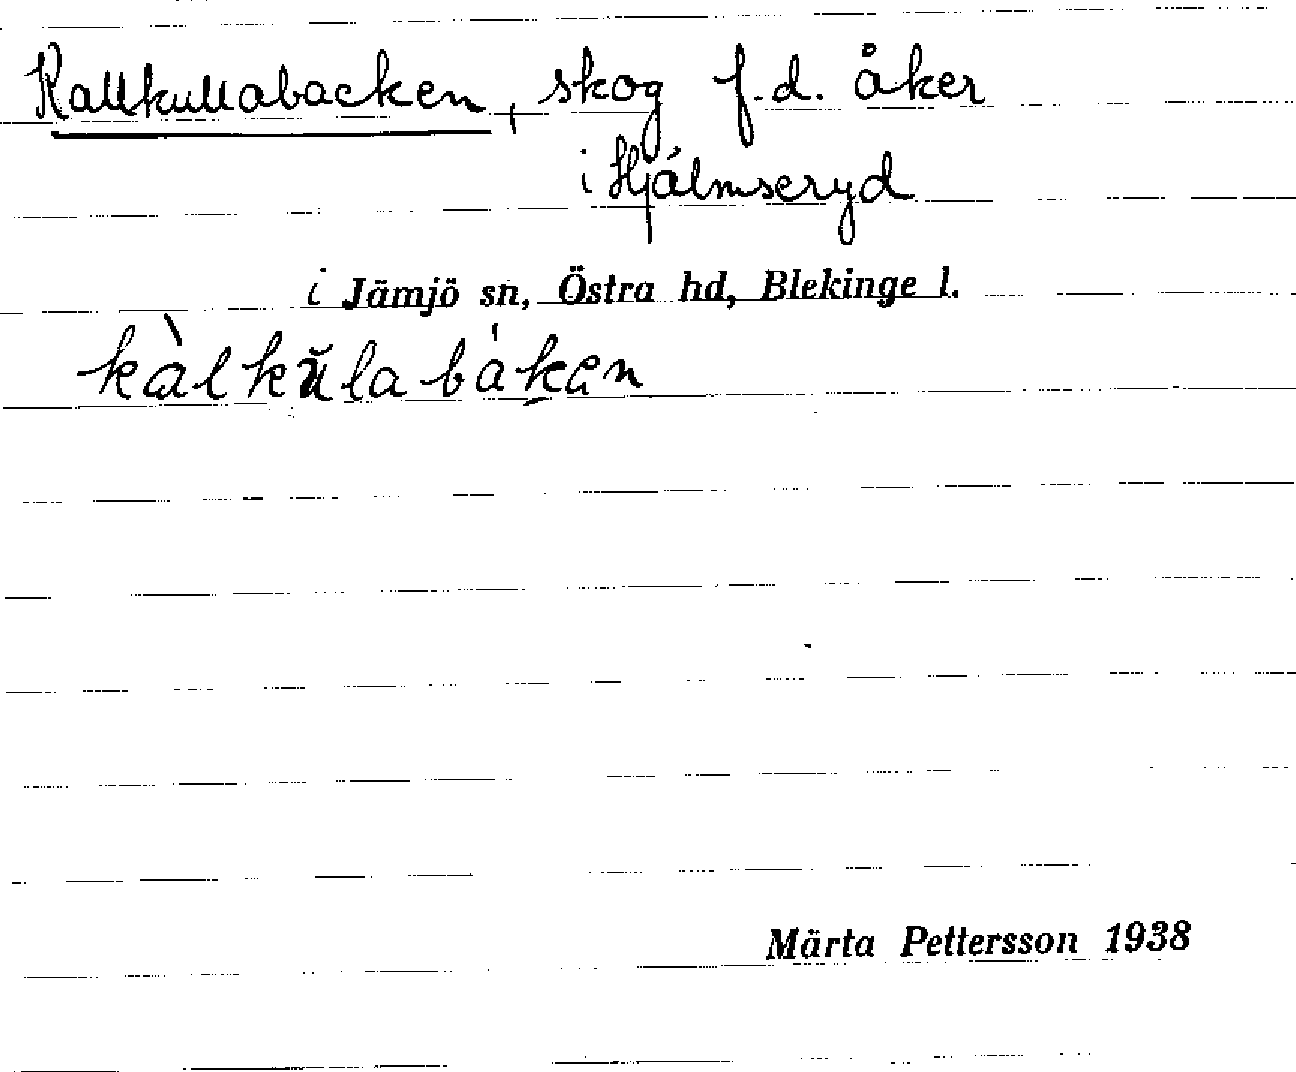 Kallkullabacken, skog f.d. åker
i Hjälmseryd
i Jämjö sn, Östra hd, Blekinge l.
kàlkŭlabáken
Märta Pettersson 1938